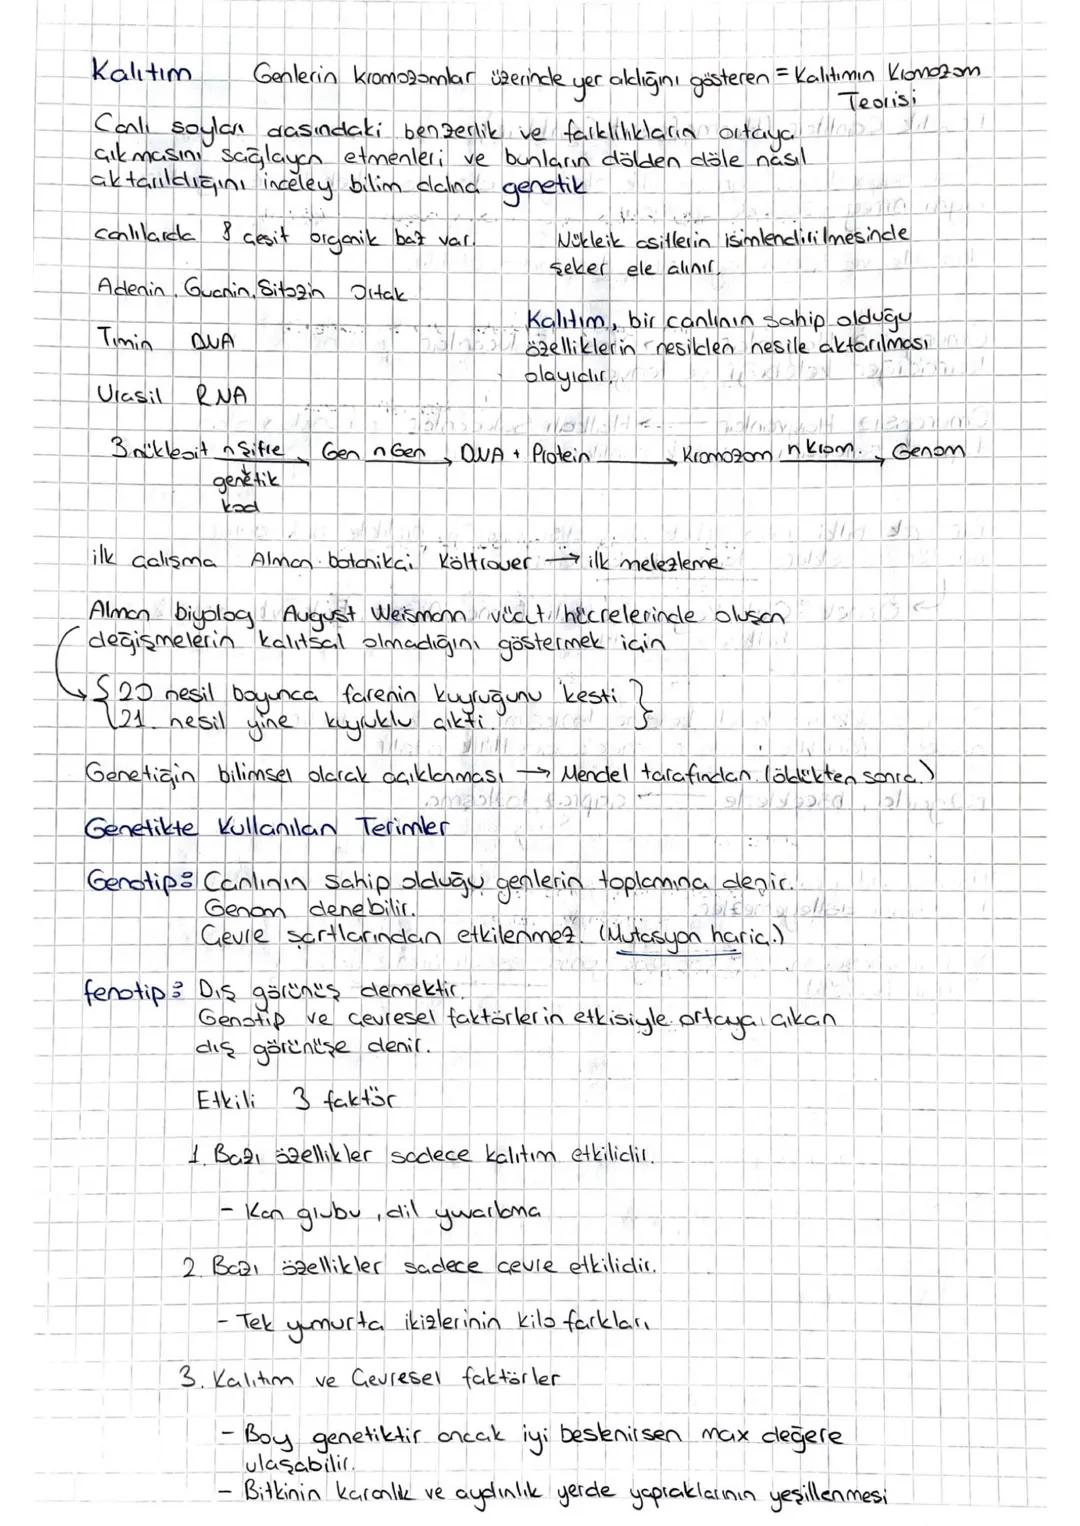 Kalıtım Genlerin kromozomlar üzerinde yer aldığını gösteren = Kalıtımın Kromozom
Teorisi
Canlı soyları arasındaki benzerlik ve farklılıkların ortaya
çıkmasını sağlayan etmenleri ve bunların dölden döle nasıl
aktarıldığını inceley bilim dalına genetik
canlılarda 8 çeşit organik baz var.
Nükleik asitlerin isimlendirilmesinde
şeker ele alınır.
Adenin, Guanin, Sitozin Ortak
Timin DNA
Urasil RNA
Kalıtım, bir canlının sahip olduğu
özelliklerin nesilden nesile aktarılması
olayıdır.
3 nükleoit n şifre → Gen n Gen → DNA + Protein → Kromozom n krom. → Genom
genetik
kod
ilk çalışma Alman botanikçi Költrouer → ilk melezleme
Alman biyolog August Weismann vücut hücrelerinde oluşan
değişmelerin kalıtsal olmadığını göstermek için
20 nesil boyunca farenin kuyruğunu kesti
21. nesil yine kuyruklu çıktı.
Genetiğin bilimsel olarak açıklanması → Mendel tarafından. (öldükten sonra.)
Genetikte Kullanılan Terimler
Genotip: Canlının sahip olduğu genlerin toplamına denir.
Genom denebilir.
Çevre şartlarından etkilenmez. (Mutasyon hariç.)
fenotip: Dış görünüş demektir.
Genotip ve çevresel faktörlerin etkisiyle ortaya çıkan
dış görünüşe denir.
Etkili 3 faktör
1. Bazı özellikler sadece kalıtım etkilidir.
- Kan grubu, dil yuvarlama
2. Bazı özellikler sadece çevre etkilidir.
- Tek yumurta ikizlerinin kilo farkları
3. Kalıtım ve Çevresel faktörler
- Boy genetiktir ancak iyi beslenirsen max değere
ulaşabilir.
- Bitkinin karanlık ve aydınlık yerde yapraklarının yeşillenmesi